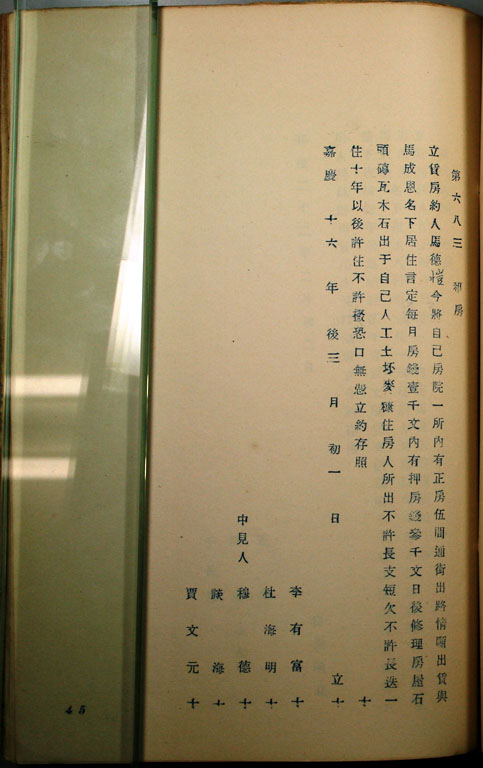 第六八三 租房
立賃房約人馬德愷今將自己房院一所內有正房伍間通街出路情願出賃與
馬成恩名下居住言定每月房錢壹千文內有押房錢參千文日後修理房屋石
頭磚瓦木石出于自己人工土坯麥穰住房人所出不許長支短欠不許長迭一
住十年以後許住不許攆恐口無憑立約存照
嘉慶十六年後三月初一日 立十
十
李有富十
杜海明十
中見人 穆德十
海十
賈文元十
45